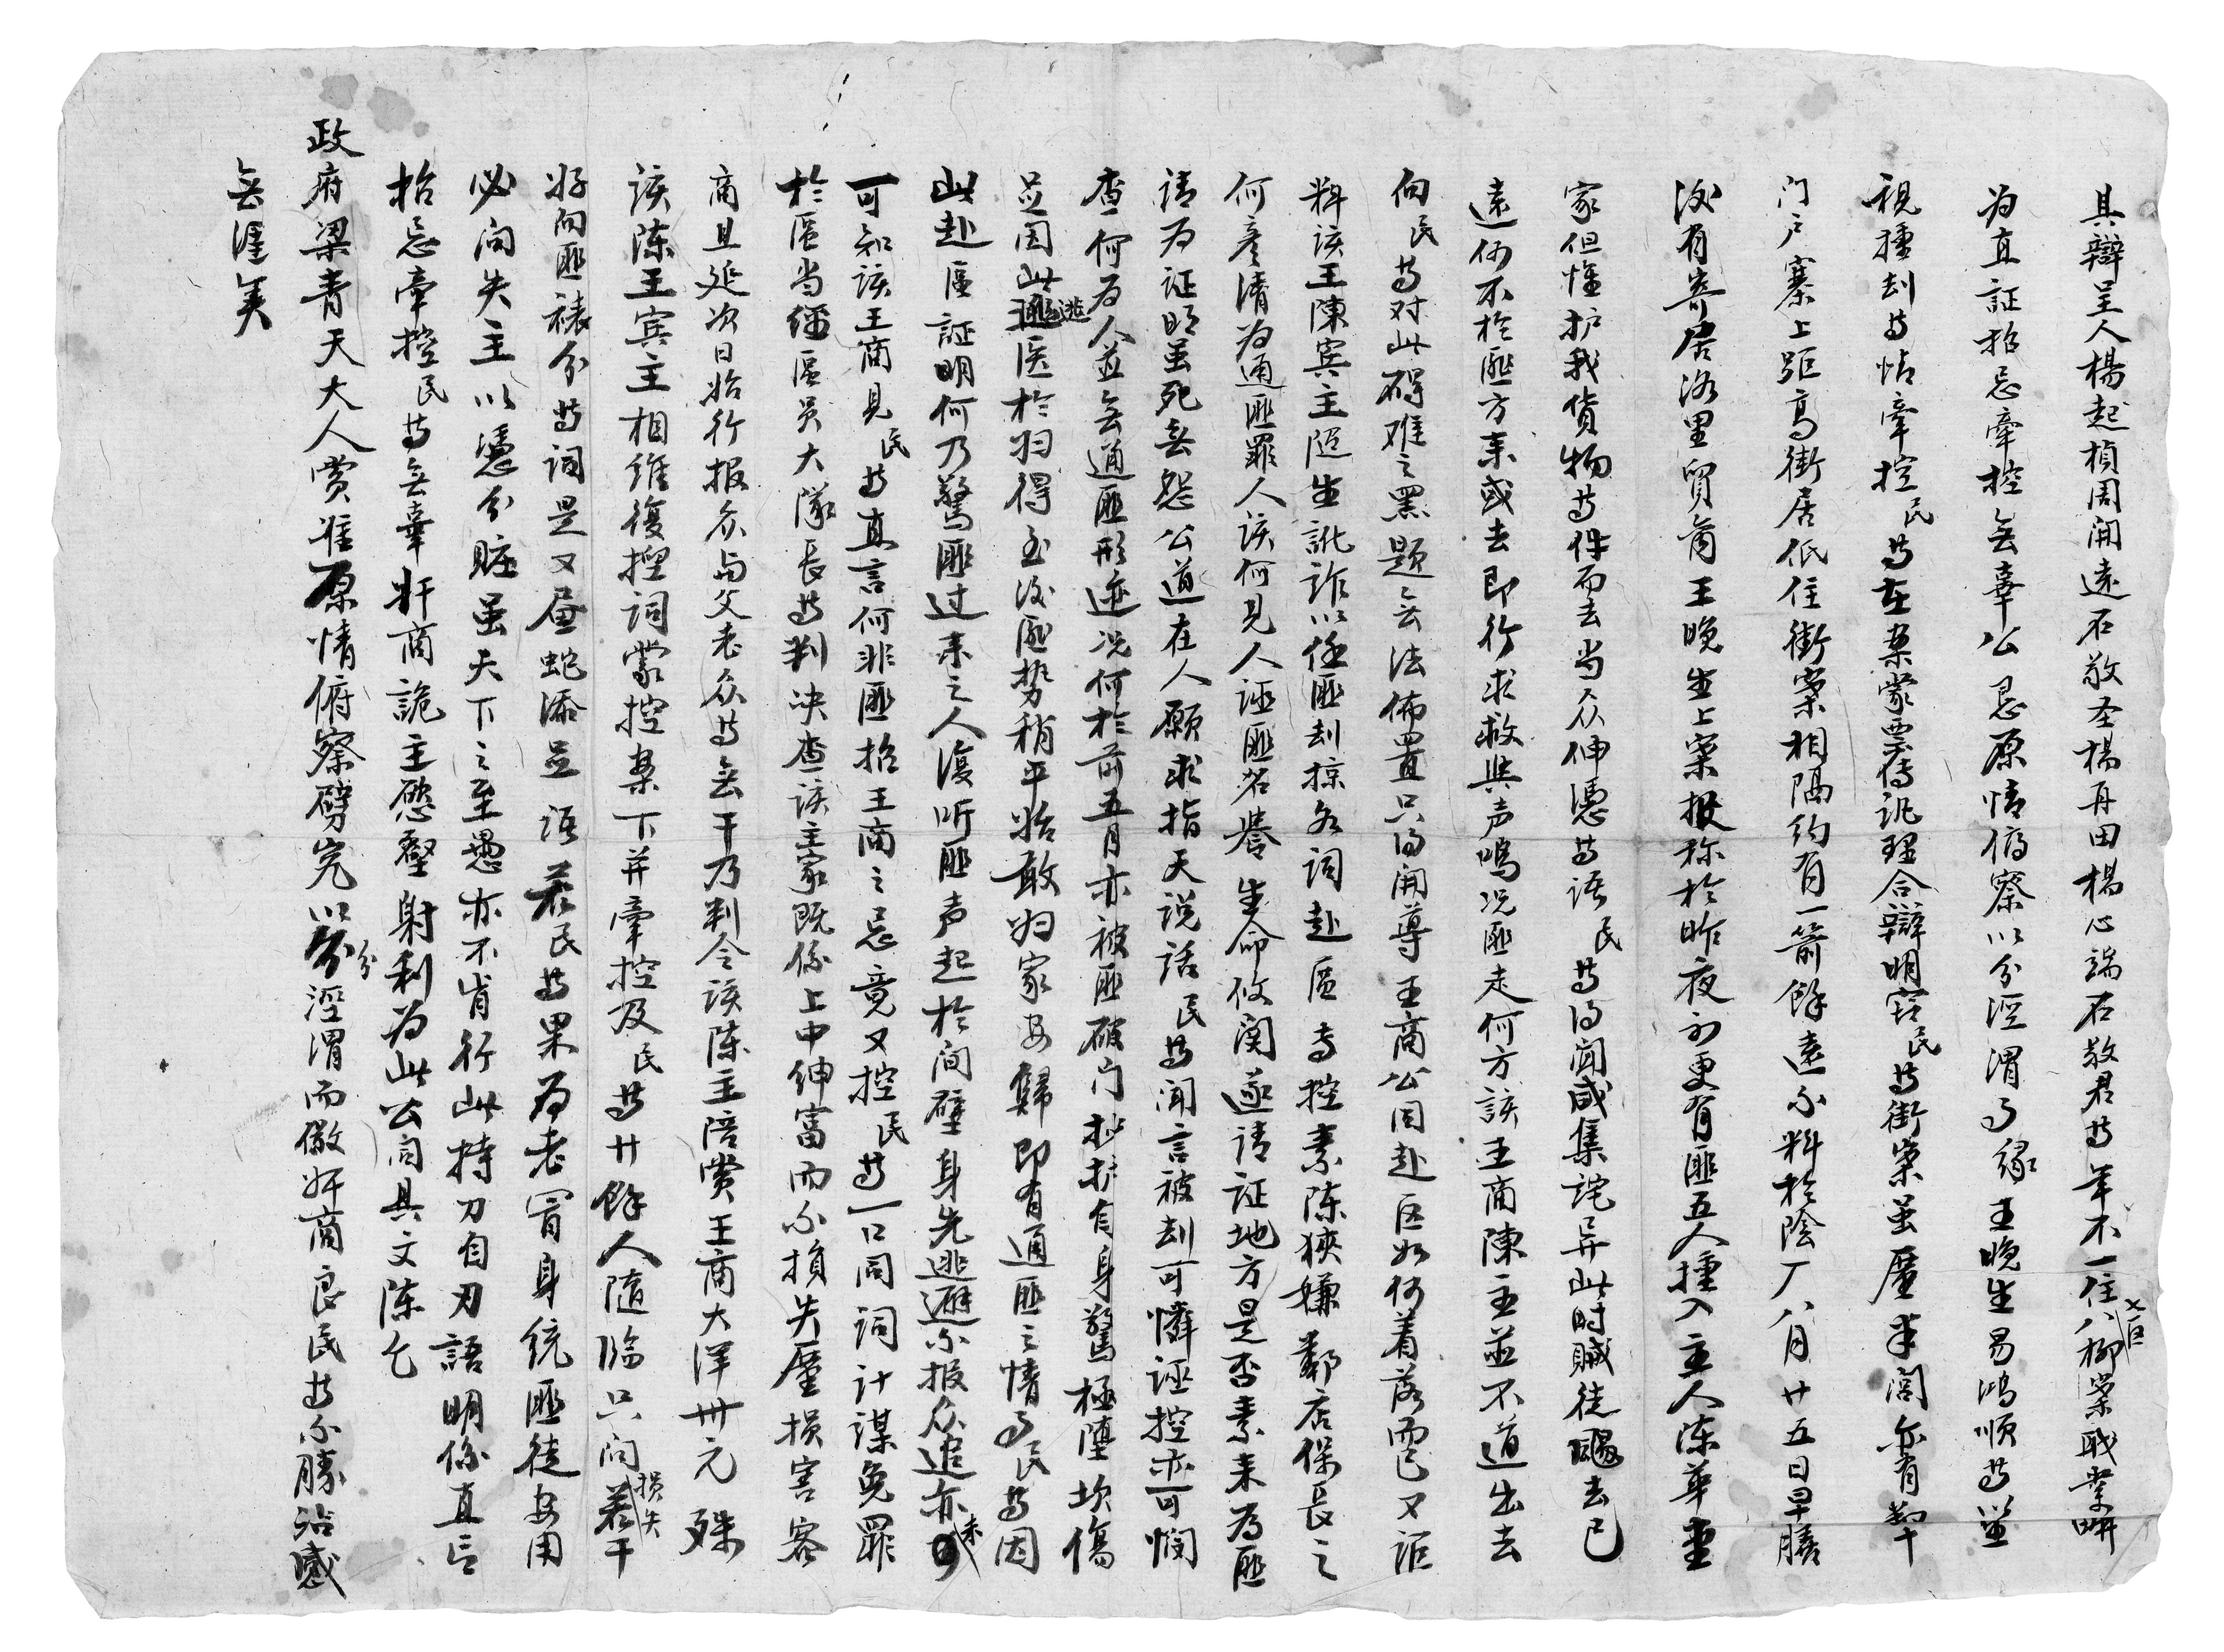 具辯呈人楊起楨周開遠石敬圣楊再田楊心端石敬君等年不一住八柳寨职業畊
为直証招忌牽控無辜公恳原情俯察以分涇渭事緣王晚生易鴻順等並
視撞刦等情牽控民等在案蒙票傳訊理合辯明窃民等街寨虽屬半閣亦有鄰
门户寨上距高街居低住街寨相隔约有一箭餘遠不料於陰八月廿五日早膳
後有寄居洛里貿商王晚生上寨报称於昨夜初更有匪五人撞入主人陈華重
家但惟护我貨物等件而去当众伸憑等语民等得闻咸集詫异此时贓徒颺去已
遠何不於匪方来或去即行求救與声鳴况匪走何方該王商陳主並不道出去
向民等对此碍难之黑題無法佈置只得開導王商公同赴区如何着落而已又詎
料该王陳宾主陞生訛詐以任匪刦掠为词赴區專控素陈狹嫌鄰店保长之
何彦清为通匪罪人该何見人诬匪名誉生命攸関遂请证地方是否素来为匪
请为证明虽死無怨公道在人願求指天说话民等闻言被刦可憐诬控亦可悯
查何为人並無通匪形迹况何於前五月亦被匪破门抄掳自身驚極墮坎傷
足因此遊医於归得至後匪势稍平始敢归家安歸即有通匪之情事民等因
此赴區証明何乃驚匪过来之人復听匪声起於间壁身先逃避不报众追亦未
可知该王商見民等直言何非匪招王商之忌竟又控民等一口同词计謀免罪
於區当經區员大隊长等判决查该主家既係上中绅富而不損失屬損害客
商且延次日始行报众与父老众等無干乃判令该陈主陪赏王商大洋卅元殊
该陈王宾主相维復捏词蒙控案下并牽控及民等廿餘人隨臨只问損失若干
好向匪裱分等词是又画蛇添足语若民等果为老冐身统匪徒安用
必向失主以憑分賍虽天下之至愚亦不肯行此持刀自刃語明係直言
招忌牽控民等無辜奸商詭主慾壑射利为此公同具文陈乞
政府梁青天大人赏准原情俯察劈究以分涇渭而儆奸商良民等不勝沾感
無涯矣